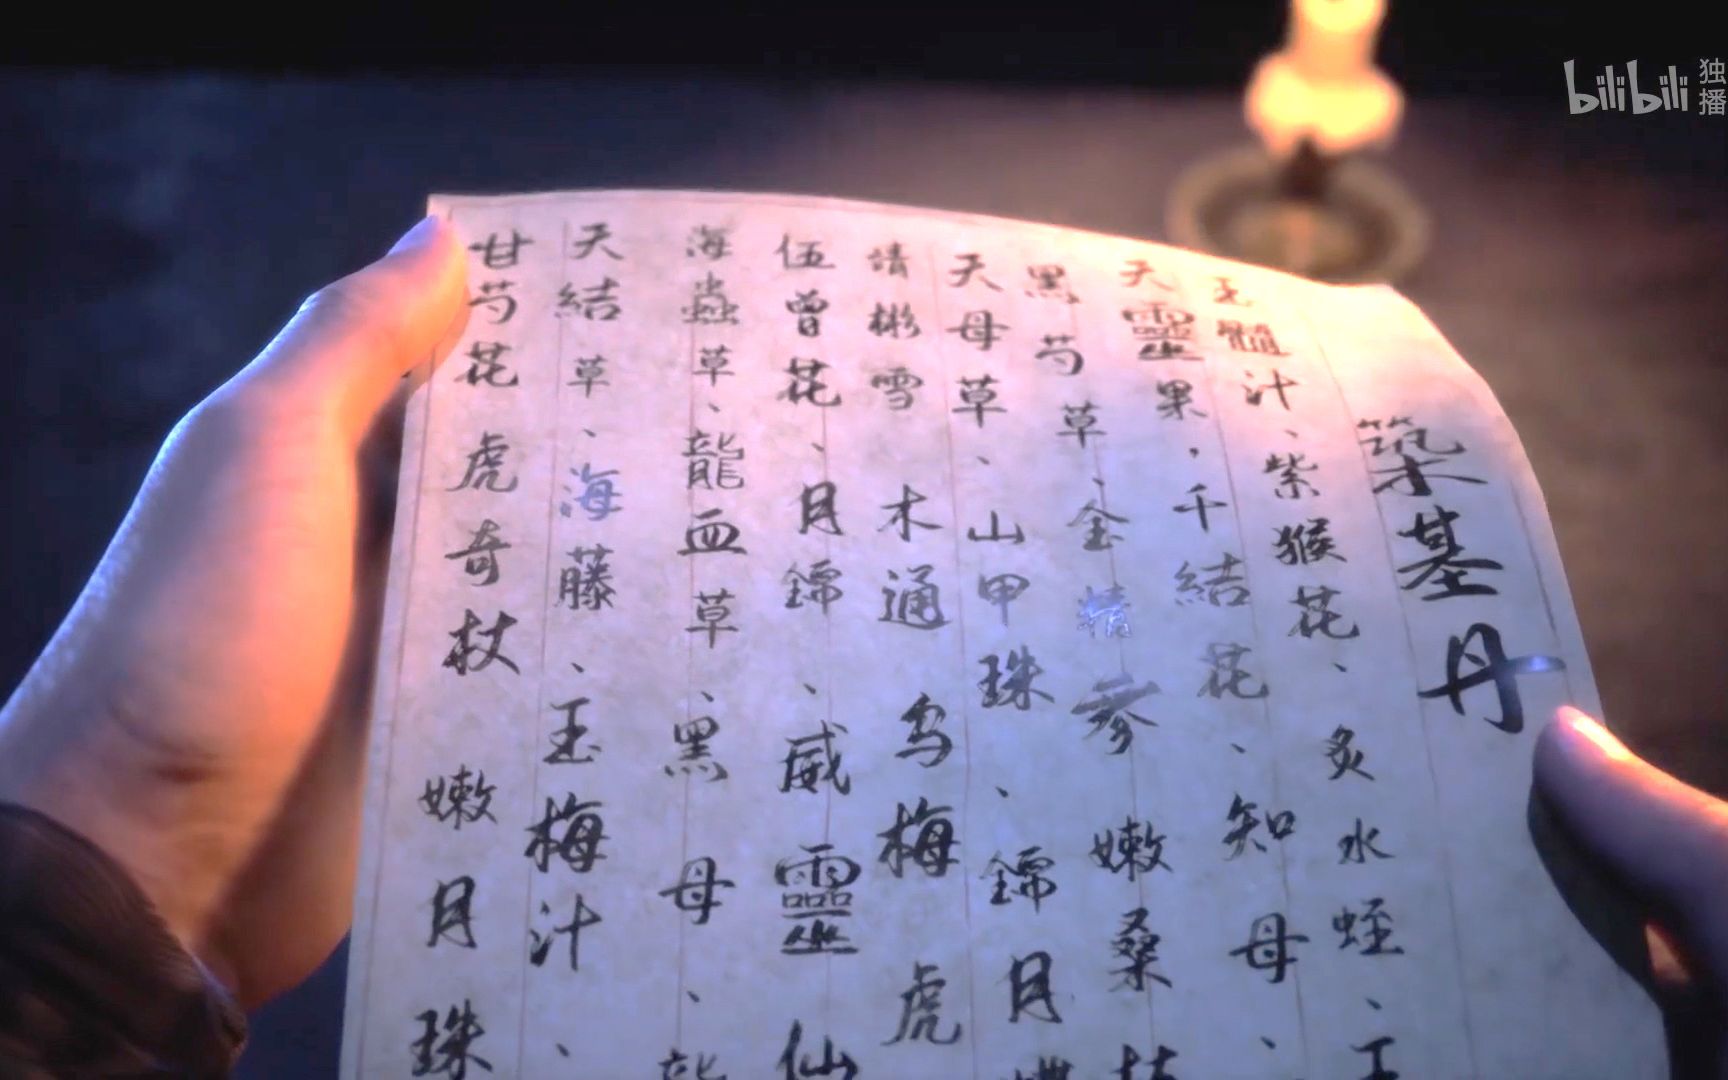 築基丹
玉髓汁、紫猴花、炙水蛭、
天靈果,千結花、知母、
黑芍草、金精參 嫩桑枝
天母草、山甲珠、鐤月
木通 烏梅 虎
伍曾花、月鐤、威靈仙
海蟲草、龍血草、黑母、龍
天結草、海藤、玉梅汁、
甘芍花 虎奇杖 嫩月珠
bilibili 独播